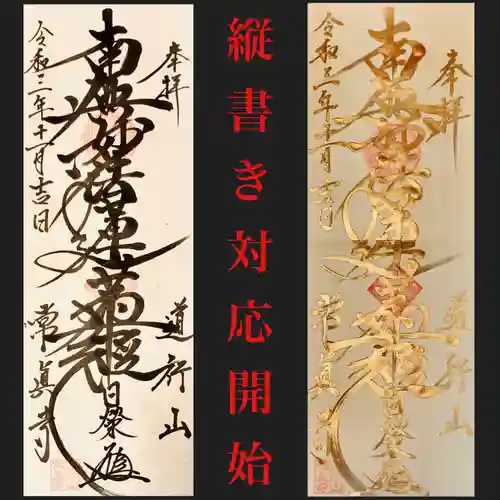 奉拝
道行山
南無妙法蓮華経
日榮
令和三年十一月吉日
常眞寺
縦書き対応開始
奉拝
道行山
南無妙法蓮華経
日榮
令和三年十一月吉日
常眞寺